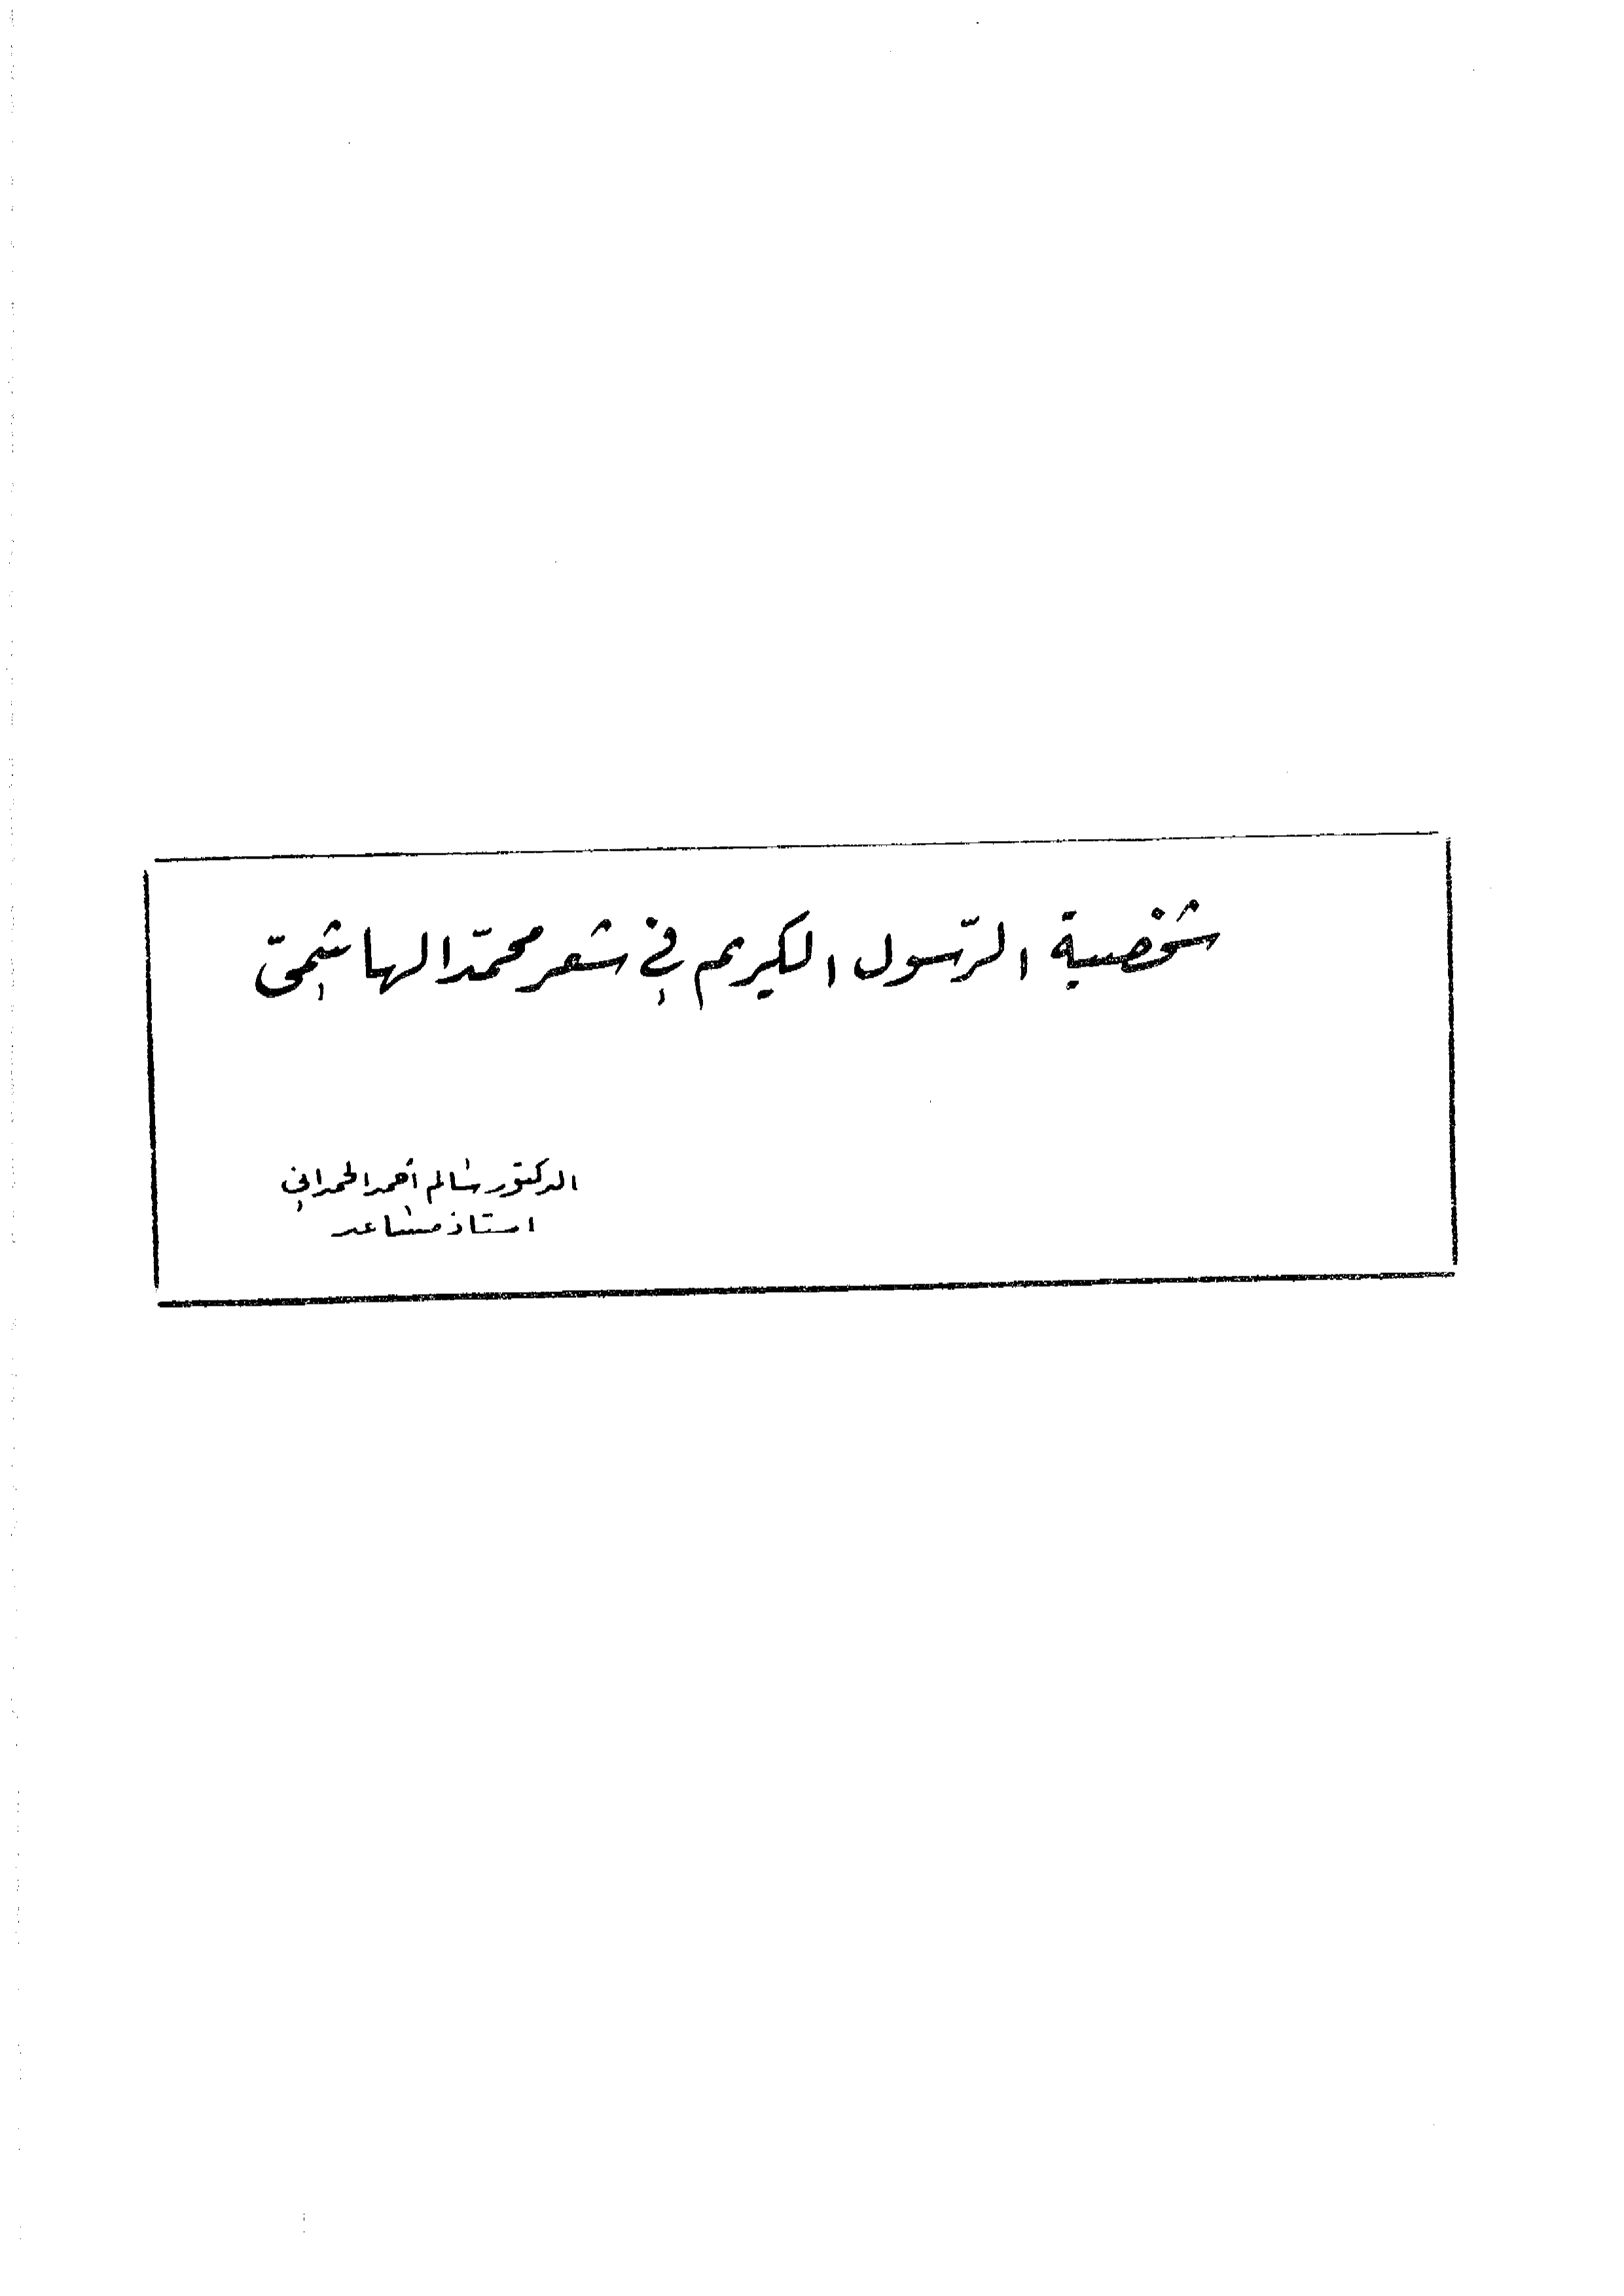 شخصية الرّسول الكريم في شعر محمّد الهاشميّ
الدكتور سالم أحمد الحمداني
استاذ مساعد